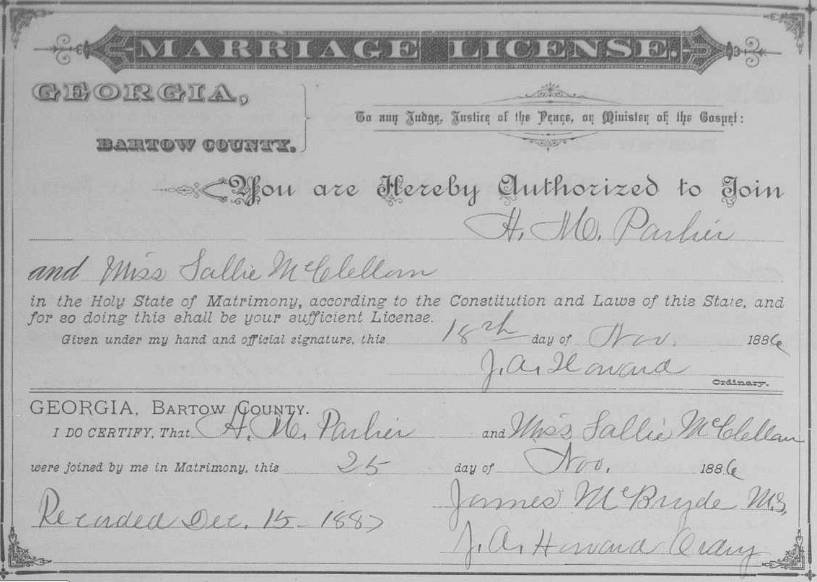 MARRIAGE LICENSE.
GEORGIA,
BARTOW COUNTY.
To any Judge, Justice of the Peace, or Minister of the Gospel:
You are Hereby Authorized to Join
H. M. Parlier
and Miss Sallie McClellan
in the Holy State of Matrimony, according to the Constitution and Laws of this State, and
for so doing this shall be your sufficient License.
Given under my hand and official signature, this 18th day of Nov. 1886
J. A. Howard
Ordinary.
GEORGIA, BARTOW COUNTY.
I DO CERTIFY, That H. M. Parlier and Miss Sallie McClellan
were joined by me in Matrimony, this 25 day of Nov. 1886
James McBryde M.G.
Recorded Dec. 15 - 1887
J. A. Howard Ordry